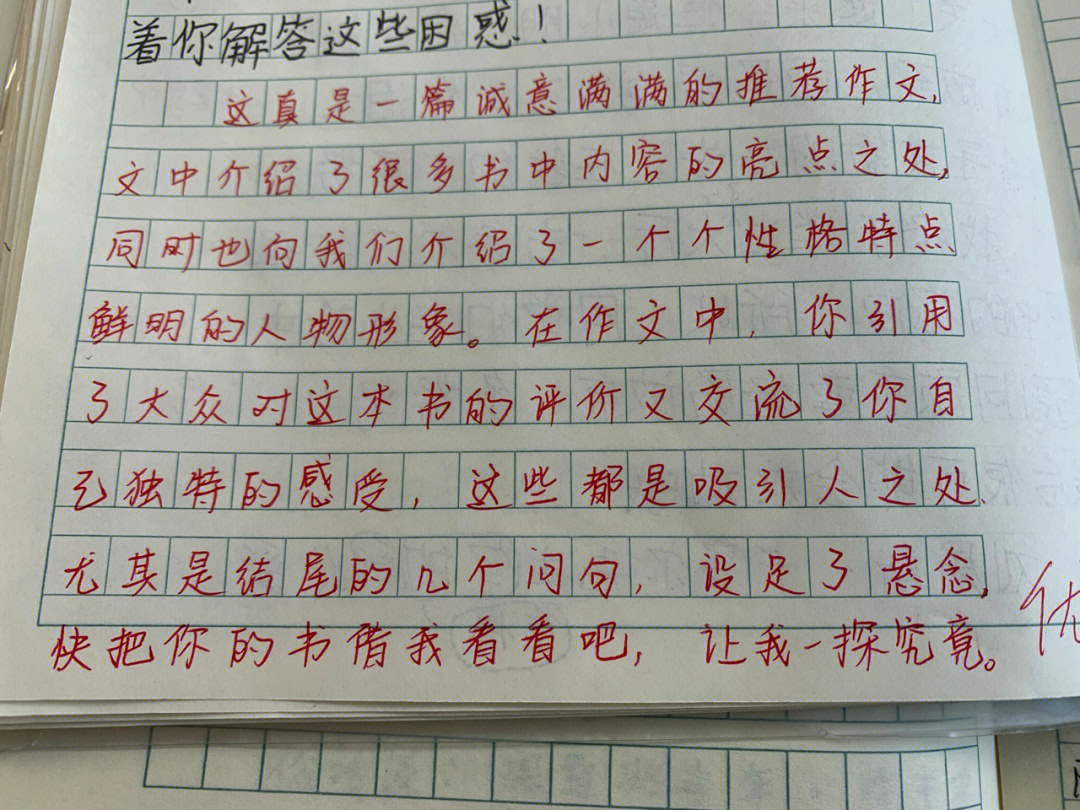 着你解答这些困惑！
这真是一篇诚意满满的推荐作文,
文中介绍了很多书中内容的亮点之处,
同时也向我们介绍了一个个性格特点
鲜明的人物形象。在作文中，你引用
了大众对这本书的评价又交流了你自
己独特的感受，这些都是吸引人之处.
尤其是结尾的几个问句，设足了悬念,
快把你的书借我看看吧，让我一探究竟。
优